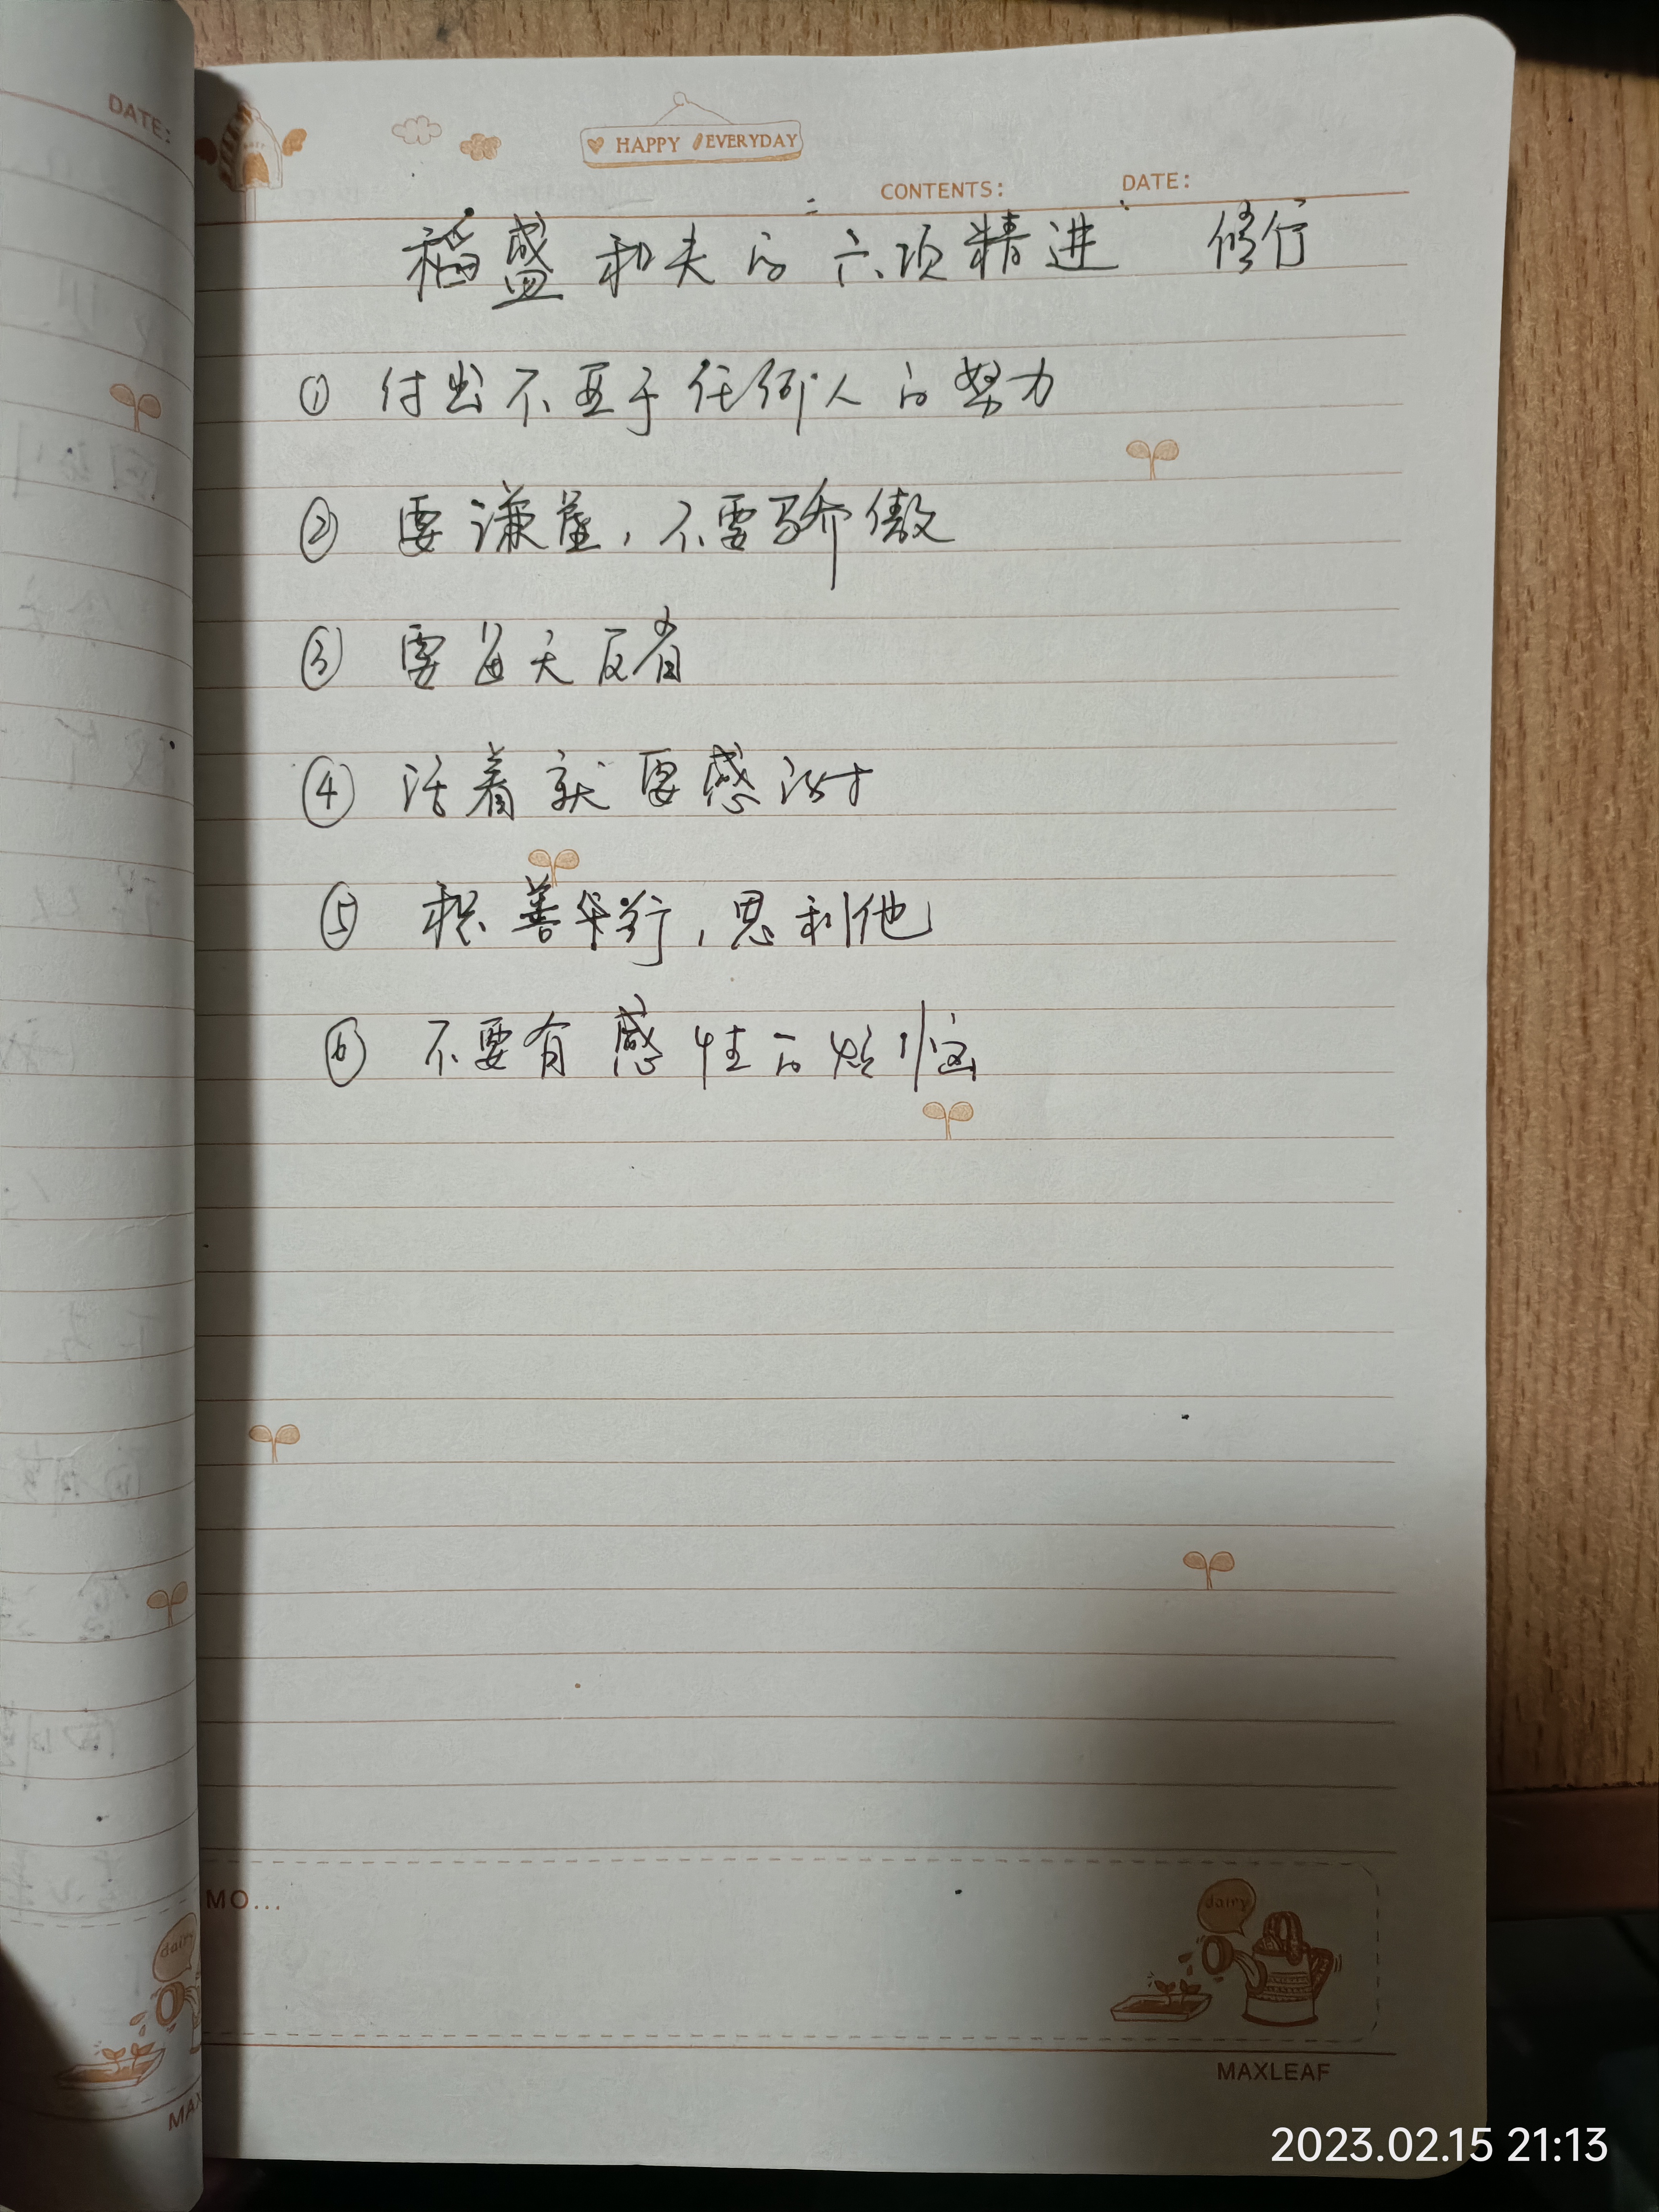 DATE:
HAPPY EVERYDAY
CONTENTS: DATE:
稻盛和夫的六项精进 修行
① 付出不亚于任何人的努力
② 要谦虚，不要骄傲
③ 要每天反省
④ 活着就要感谢
⑤ 积善举行，思利他
⑥ 不要有感性的烦恼
MO...
dairy
dairy
MAXLEAF
MAX
2023.02.15 21:13